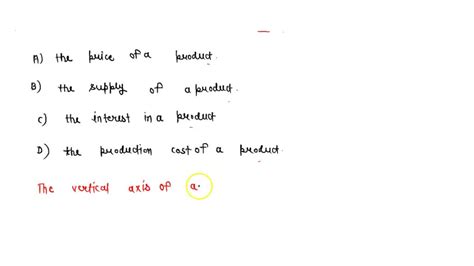 A) the price of a product.
B) the supply of a product.
C) the interest in a product
D) the production cost of a product.
The vertical axis of a